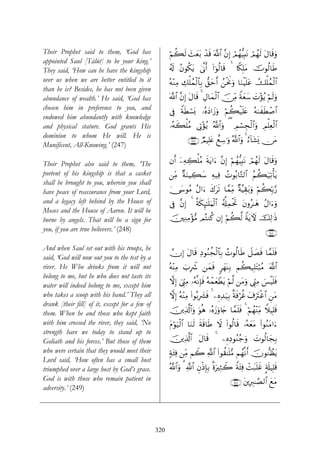 Their Prophet said to them, 'God has
appointed Saul [Talūt] to be your king.'
They said, 'How can he have the kingship
over us when we are better entitled to it
than he is? Besides, he has not been given
abundance of wealth.' He said, 'God has
chosen him in preference to you, and
endowed him abundantly with knowledge
and physical stature. God grants His
dominion to whom He will. He is
Munificent, All-Knowing.' (247)
Their Prophet also said to them, 'The
portent of his kingship is that a casket
shall be brought to you, wherein you shall
have peace of reassurance from your Lord,
and a legacy left behind by the House of
Moses and the House of Aaron. It will be
borne by angels. That will be a sign for
you, if you are true believers.' (248)
And when Saul set out with his troops, he
said, 'God will now put you to the test by a
river. He who drinks from it will not
belong to me, but he who does not taste its
water will indeed belong to me, except him
who takes a scoop with his hand.' They all
drank [their fill] of it, except for a few of
them. When he and those who kept faith
with him crossed the river, they said, 'No
strength have we today to stand up to
Goliath and his forces.' But those of them
who were certain that they would meet their
Lord said, 'How often has a small host
triumphed over a large host by God's grace.
God is with those who remain patient in
adversity.' (249)
وَقَالَ لَهُمْ نَبِيُّهُمْ إِنَّ اللَّهَ قَدْ بَعَثَ لَكُمْ
طَالُوتَ مَلِكًا قَالُوا أَنَّى يَكُونُ لَهُ
الْمُلْكُ عَلَيْنَا وَنَحْنُ أَحَقُّ بِالْمُلْكِ مِنْهُ
وَلَمْ يُؤْتَ سَعَةً مِنَ الْمَالِ قَالَ إِنَّ اللَّهَ
اصْطَفَاهُ عَلَيْكُمْ وَزَادَهُ بَسْطَةً فِي
الْعِلْمِ وَالْجِسْمِ وَاللَّهُ يُؤْتِي مُلْكَهُ
مَنْ يَشَاءُ وَاللَّهُ وَاسِعٌ عَلِيمٌ ﴿٢٤٧﴾
وَقَالَ لَهُمْ نَبِيُّهُمْ إِنَّ آيَةَ مُلْكِهِ أَنْ
يَأْتِيَكُمُ التَّابُوتُ فِيهِ سَكِينَةٌ مِنْ
رَبِّكُمْ وَبَقِيَّةٌ مِمَّا تَرَكَ آلُ مُوسَى
وَآلُ هَارُونَ تَحْمِلُهُ الْمَلَائِكَةُ إِنَّ فِي
ذَلِكَ لَآيَةً لَكُمْ إِنْ كُنْتُمْ مُؤْمِنِينَ
﴿٢٤٨﴾
فَلَمَّا فَصَلَ طَالُوتُ بِالْجُنُودِ قَالَ إِنَّ
اللَّهَ مُبْتَلِيكُمْ بِنَهَرٍ فَمَنْ شَرِبَ مِنْهُ
فَلَيْسَ مِنِّي وَمَنْ لَمْ يَطْعَمْهُ فَإِنَّهُ مِنِّي إِلَّا
مَنِ اغْتَرَفَ غُرْفَةً بِيَدِهِ فَشَرِبُوا مِنْهُ إِلَّا
قَلِيلًا مِنْهُمْ فَلَمَّا جَاوَزَهُ هُوَ وَالَّذِينَ
آمَنُوا مَعَهُ قَالُوا لَا طَاقَةَ لَنَا الْيَوْمَ
بِجَالُوتَ وَجُنُودِهِ قَالَ الَّذِينَ
يَظُنُّونَ أَنَّهُمْ مُلَاقُو اللَّهِ كَمْ مِنْ فِئَةٍ
قَلِيلَةٍ غَلَبَتْ فِئَةً كَثِيرَةً بِإِذْنِ اللَّهِ وَاللَّهُ
مَعَ الصَّابِرِينَ ﴿٢٤٩﴾
320